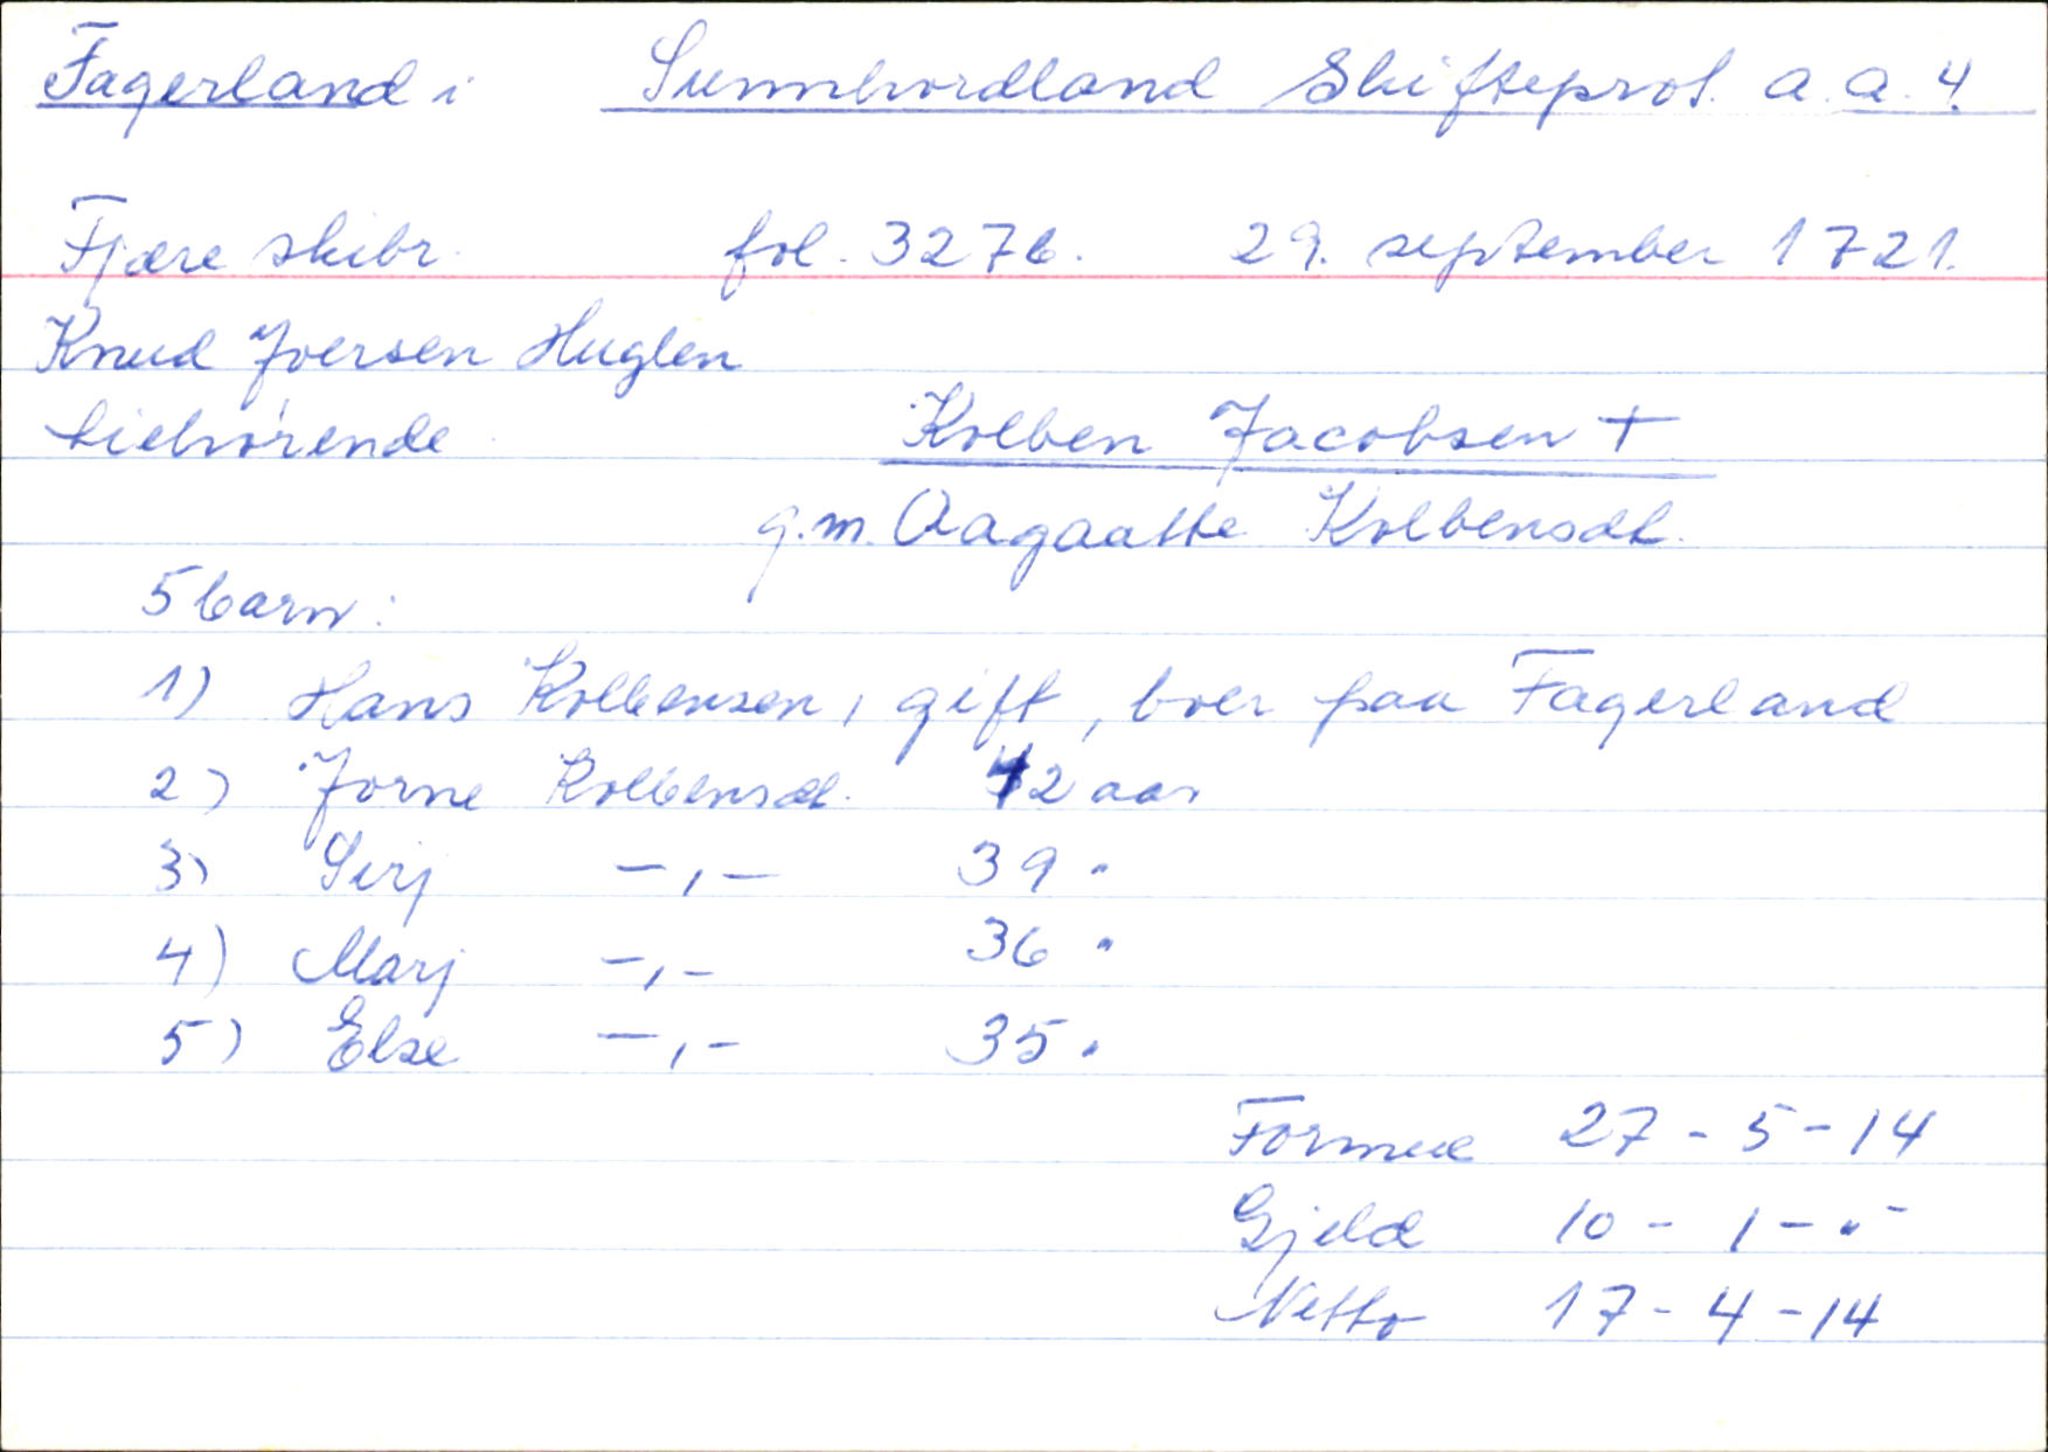 Fagerland i Sunnhordland Skifteprot. a.a.4.
Fjære skibr. fol. 327b. 29. september 1721.
Knud Joersen Huglen
tiehørende Kolben Jacobsen +
g.m. Aagaatte Kolbensdt.
5 barn:
1) Hans Kolbensen, gift, boer paa Fagerland
2) Jorne Kolbensdt. 42 aar
3) Sirj -,- 39 "
4) Marj -,- 36 "
5) Else -,- 35 "
Formue 27 - 5 - 14
Gjeld 10 - 1 - " -
Netto 17 - 4 - 14